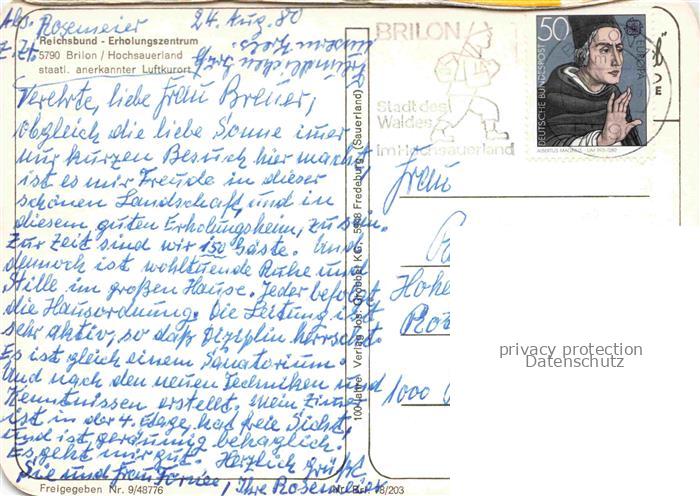 Abs. Rosemeier 24. Aug. 80
z. Zt.
Reichsbund - Erholungszentrum
5790 Brilon / Hochsauerland
staatl. anerkannter Luftkurort
Verehrte, liebe Frau Breuer,
obgleich die liebe Sonne imer
nur kurzen Besuch hier macht
ist es mir Freude in dieser
schönen Landschaft, und in
diesem, guten Erholungsheim, zu sein.
Zur Zeit sind wir 150 Gäste. Und
dennoch ist wohltuende Ruhe und
Stille im großen Hause. Jeder befolgt
die Hausordnung. Die Leitung ist
sehr aktiv, so daß Diziplin herrscht.
Es ist gleich einem Sanatorium.
Und nach den neuen Techniken und
Kenntnissen erstellt. Mein Zimer
ist in der 4. Etage, hat freie Sicht,
und ist geräumig behaglich.
Es geht mir gut. Herzlich grüßt
Sie und Frau Tornee, Ihre Rosemeier
Freundlichen Gruß
Freigegeben Nr. 9/48776
18/203
100 Jahre Verlag Jos. Grobbel KG, 5948 Fredeburg (Sauerland)
BRILON
Stadt des
Waldes
im Hochsauerland
50
DEUTSCHE BUNDESPOST
EUROPA
ALBERTUS MAGNUS
Frau
Hohe
1000
privacy protection
Datenschutz